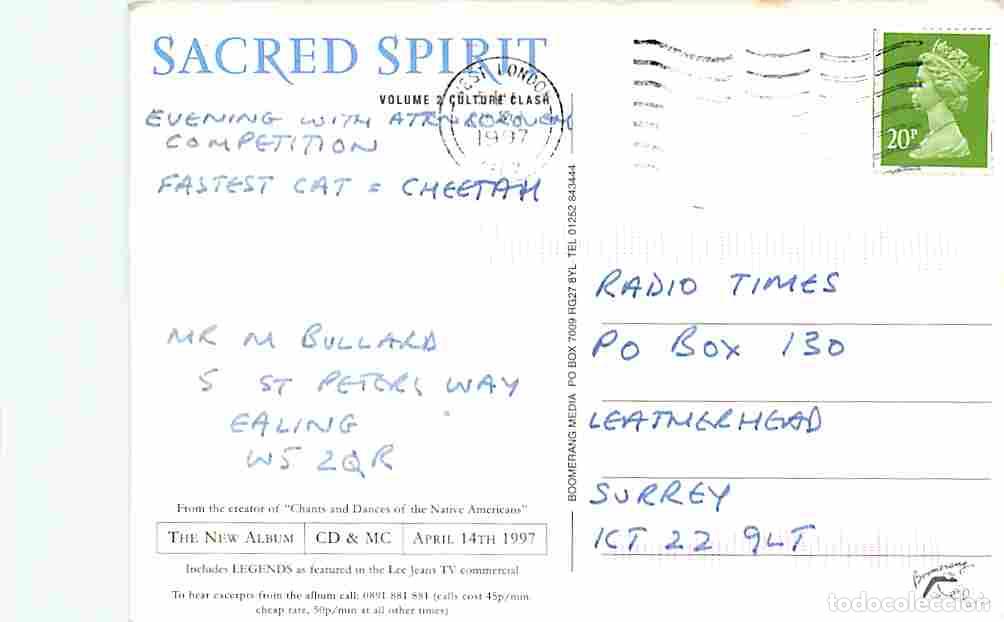 SACRED SPIRIT
VOLUME 2 CULTURE CLASH
WEST LONDON
1997
20P
EVENING WITH ATTENBOROUGH
COMPETITION
FASTEST CAT = CHEETAH
MR M BULLARD
5 ST PETERS WAY
EALING
W5 2QR
From the creator of "Chants and Dances of the Native Americans"
THE NEW ALBUM CD & MC APRIL 14TH 1997
Includes LEGENDS as featured in the Lee Jeans TV commercial
To hear excerpts from the album call: 0891 881 881 (calls cost 45p/min
cheap rate, 50p/min at all other times)
BOOMERANG MEDIA PO BOX 7009 RG27 8YL TEL 01252 843444
RADIO TIMES
PO BOX 130
LEATHERHEAD
SURREY
KT 22 9LT
Boomerang
todocoleccion